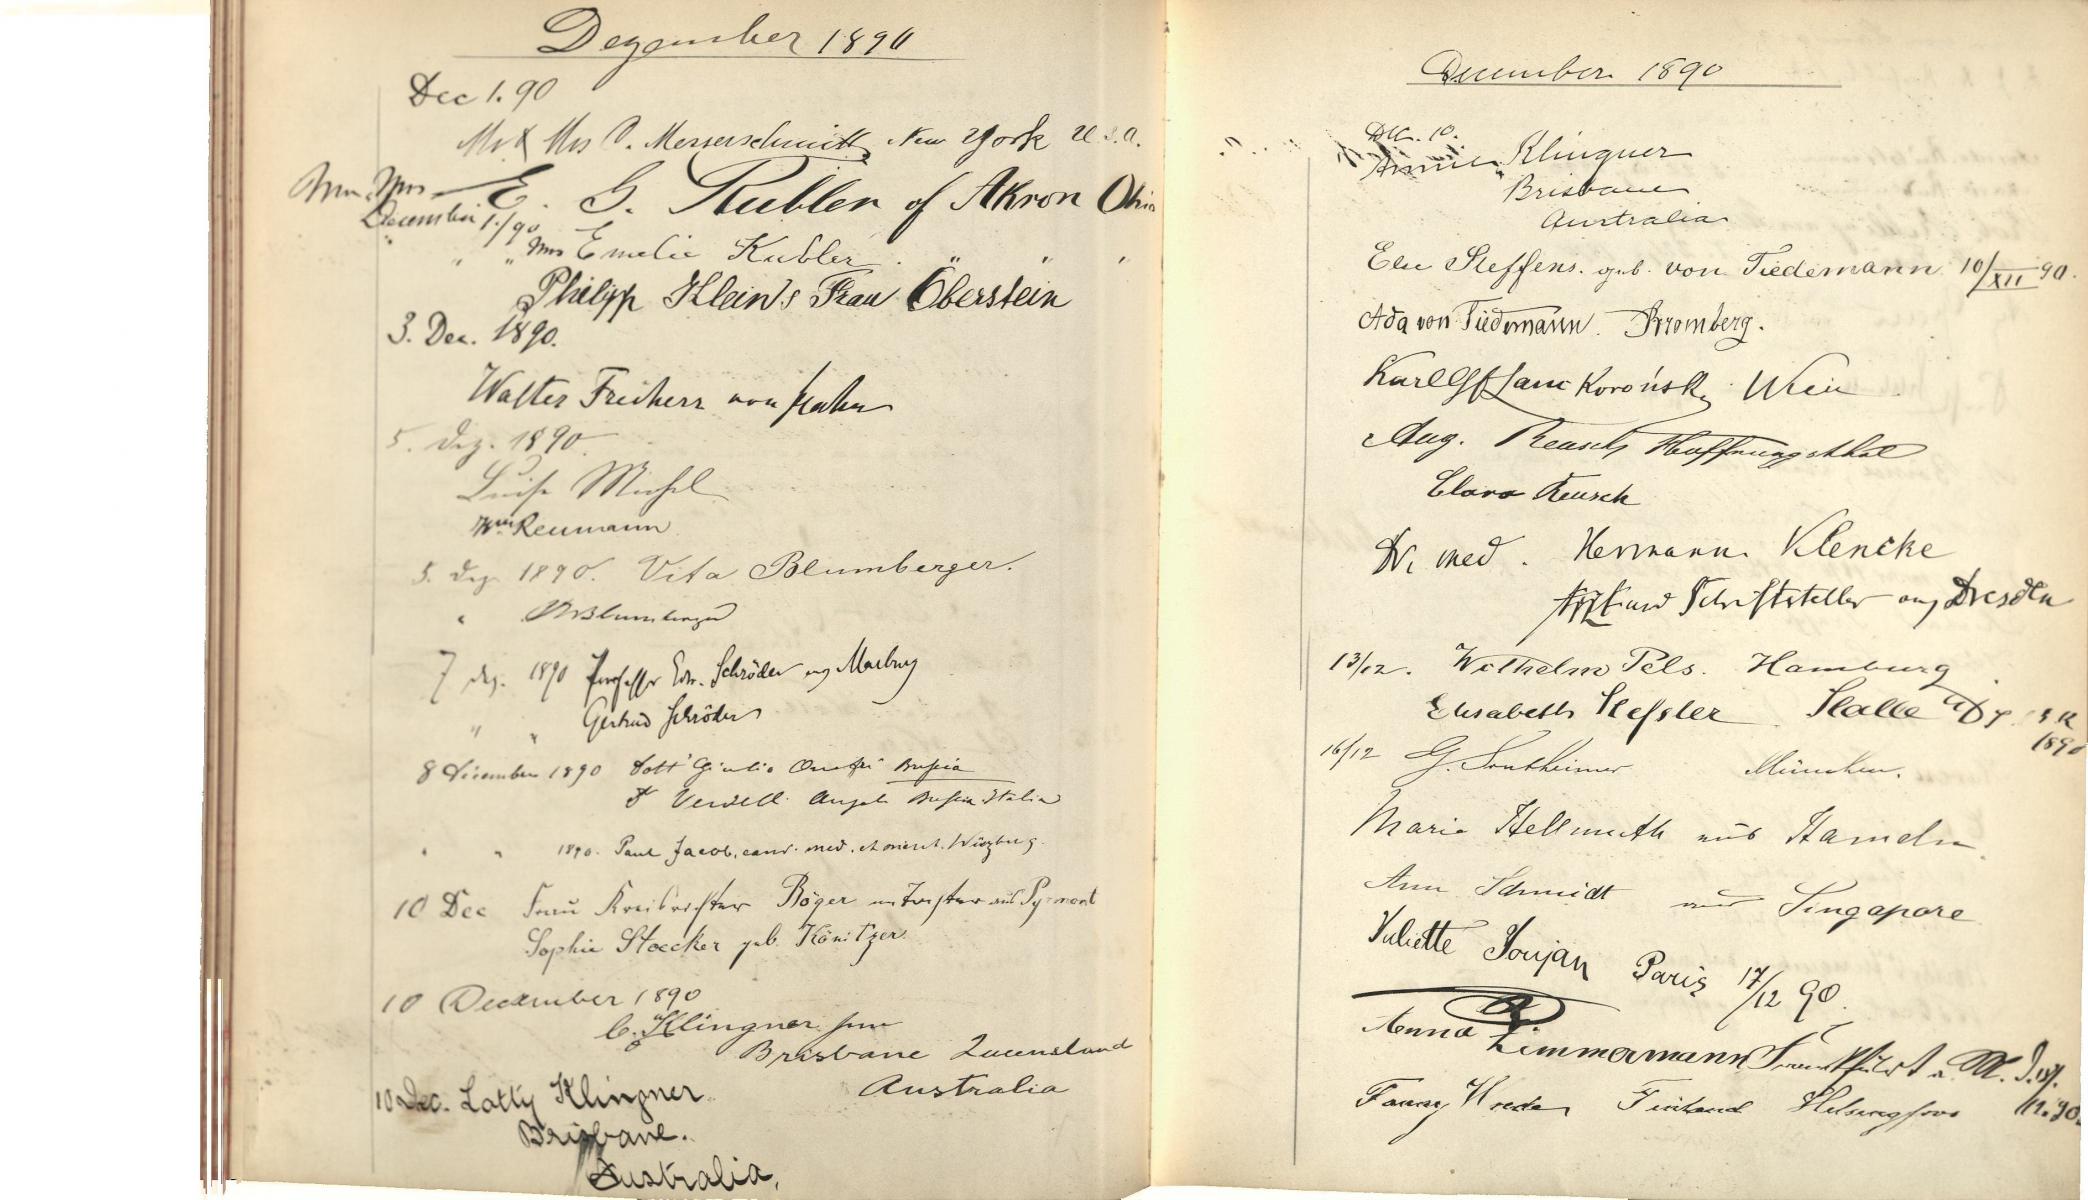 Dezember 1890
Dec 1. 90
Mr & Mrs Messerschmitt New York U.S.A.
E. G. Kubler of Akron Ohio
December 1./90
" " Mrs Emelie Kubler " " "
Philipp Klein's Frau Oberstein
3. Dec. 1890.
Walter Freiherr von Hahn
5. Dez. 1890
Luise Michel
Wm Reumann
5. Dez. 1890. Vita Blumberger.
" Blumberger
7 Dez. 1890 Professor Edw. Schröder aus Marburg
" " Gertrud Schröder
8 December 1890 Dott Giulio
Angelo Italia
" " 1890. Paul Jacob, cand. med. Würzburg.
10 Dec Frau Böger aus Pyrmont
Sophie Stoecker geb. Könitzer.
10 December 1890
C. Klingner
Brisbane Queensland
Australia
10 Dec. Lotty Klingner
Brisbane.
Australia.
December 1890
Dec. 10.
Annie Klingner
Brisbane
Australia
Else Steffens. geb. von Tiedemann 10/XII 90.
Ada von Tiedemann. Bromberg.
Karl Gf Lanckoroński Wien
Aug. Reusch Hoffnungsthal
Clara Reusch
Dr. med. Hermann Klencke
Arzt und Schriftsteller aus Dresden
13/12. Wilhelm Pels. Hamburg
Elisabeth Kessler Halle a/S 1890
16/12 G. Sontheimer München.
Marie Hellmuth aus Hameln.
Ann Schmidt aus Singapore
Juliette Goujan Paris 17/12 90.
Anna Zimmermann Frankfurt a. M.
Fanny Finland Helsingfors 90.